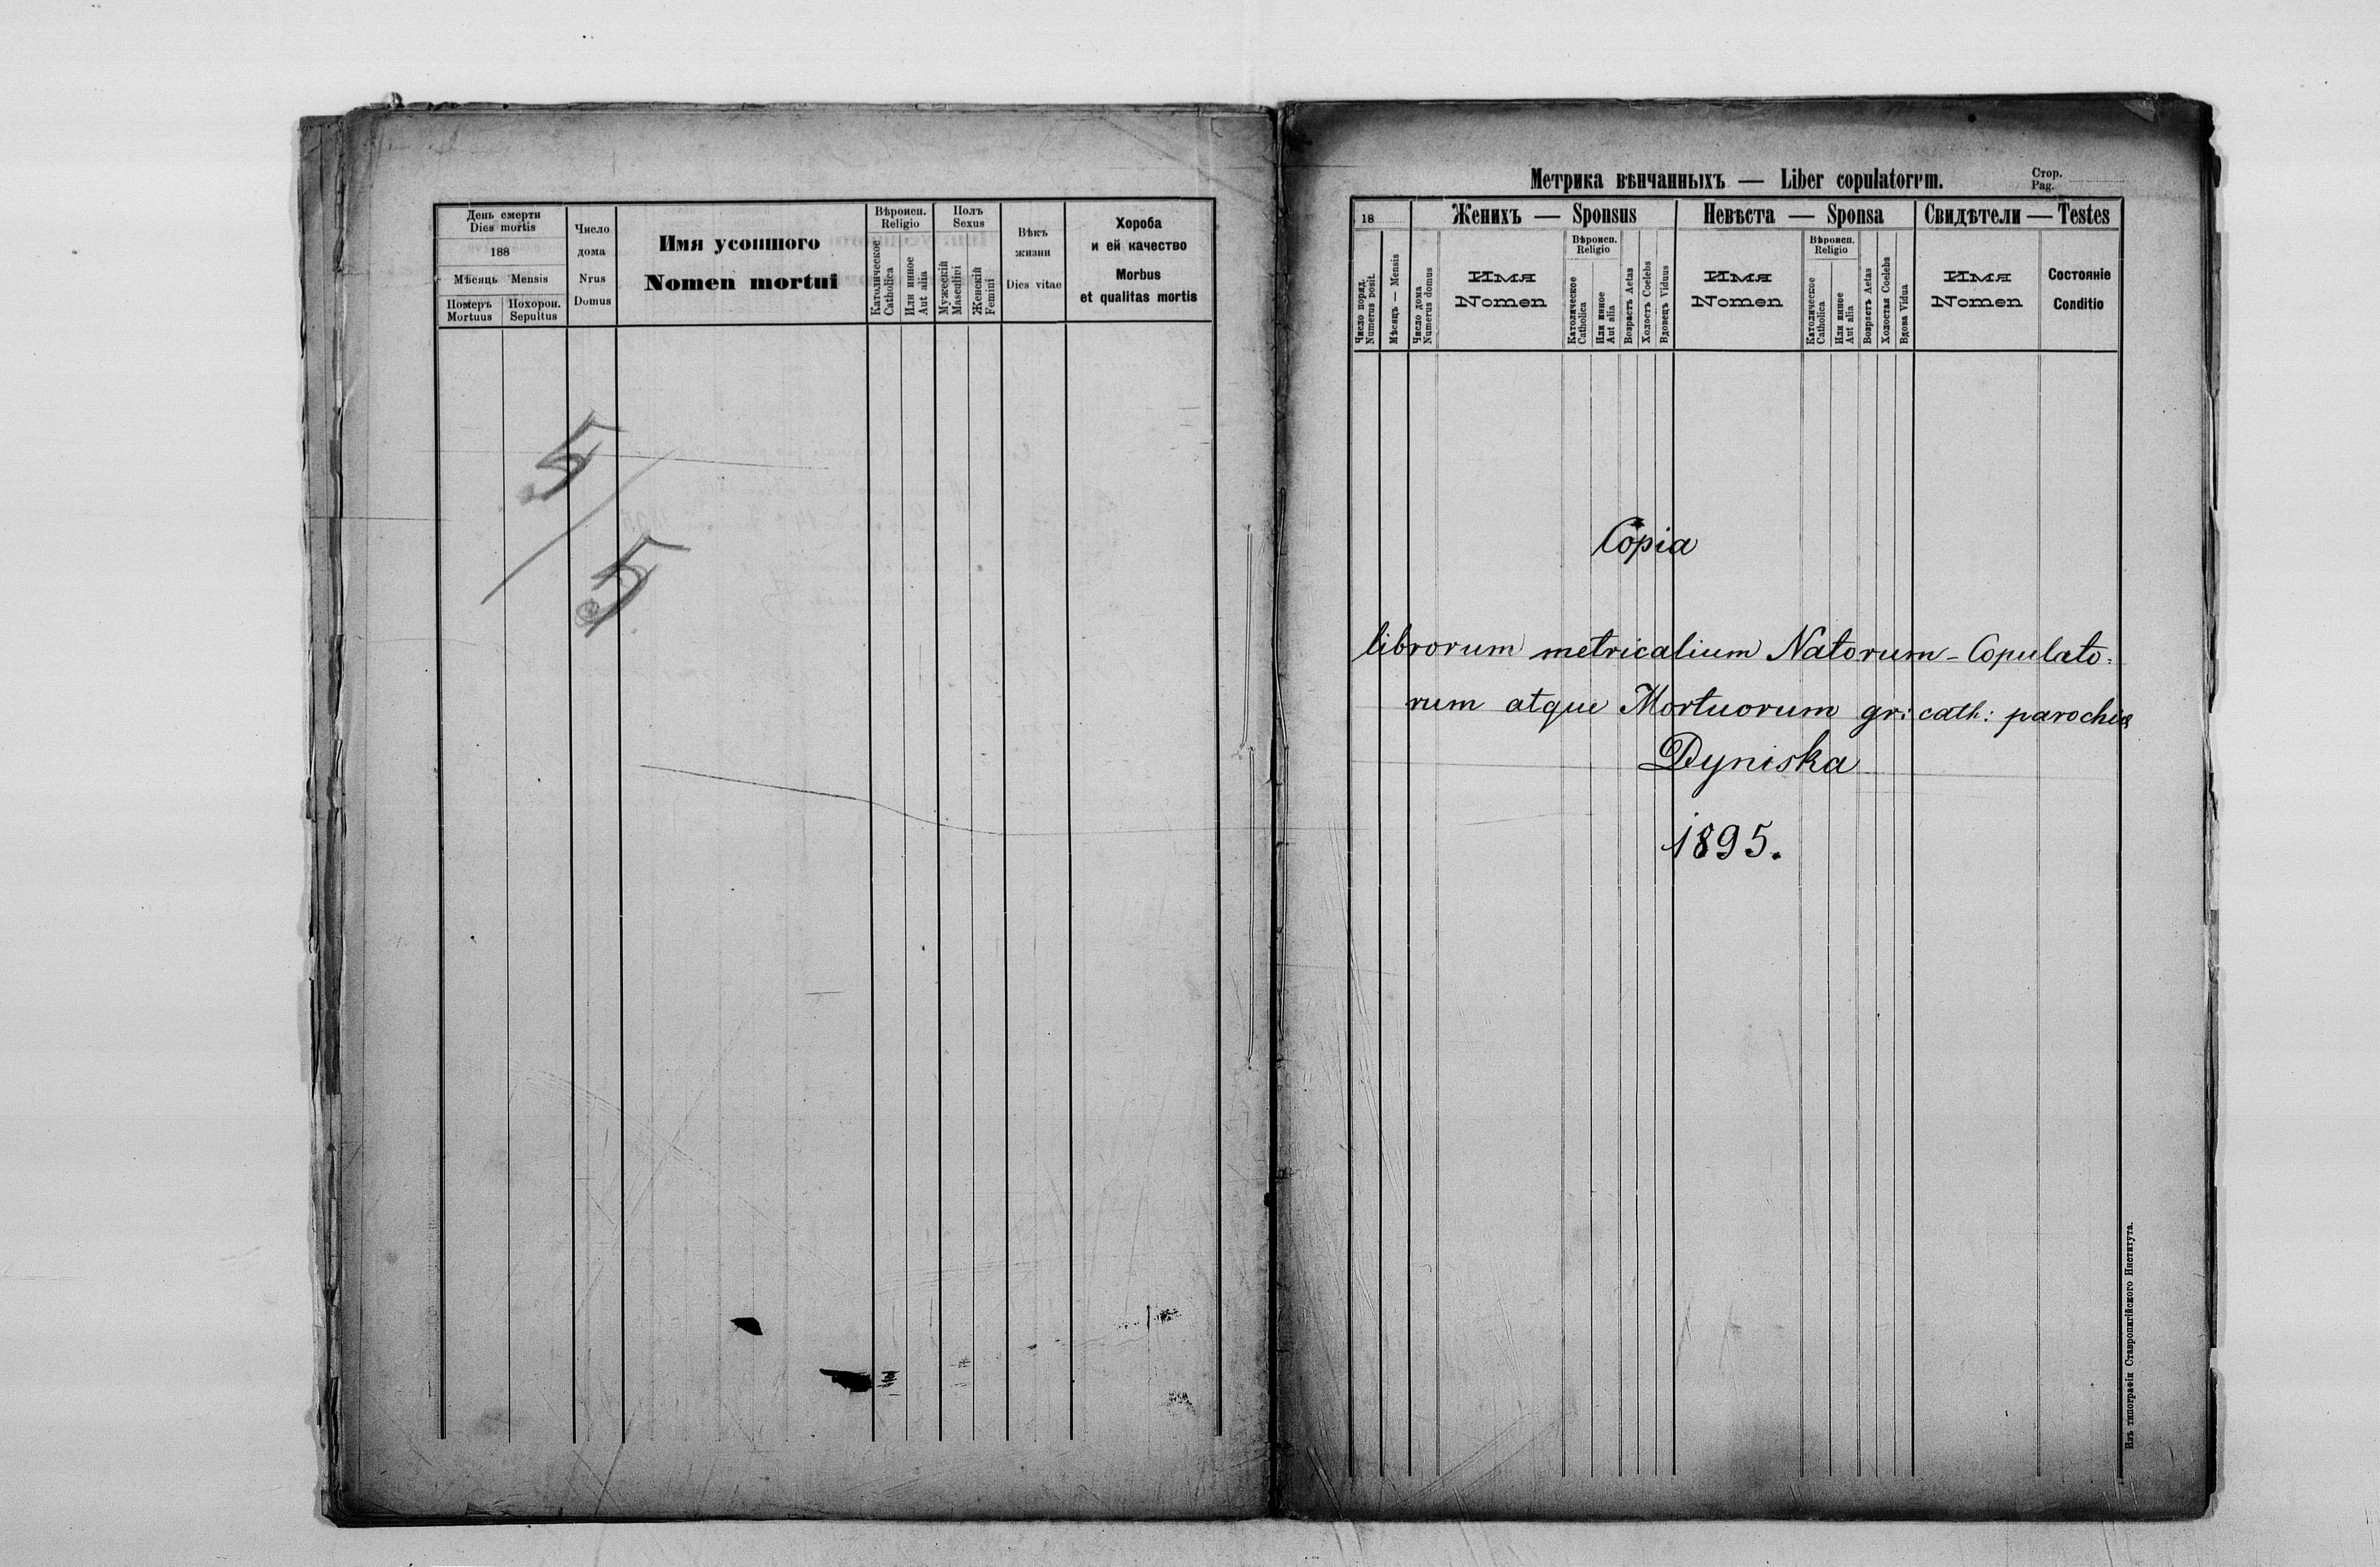 День смерти
Dies mortis
188
Мѣсяць Mensis
Померъ
Mortuus
Похорон.
Sepultus
Число
дома
Nrus
Domus
Имя усопшого
Nomen mortui
Вѣроисп.
Religio
Католическое
Catholica
Или инное
Aut alia
Полъ
Sexus
Мужескій
Masculini
Женскій
Femini
Вѣкъ
жизни
Dies vitae
Хороба
и ей качество
Morbus
et qualitas mortis
5/5
Метрика вѣнчанныхъ — Liber copulatorum.
Стор.
Pag.
18
Число поряд.
Numerus posit.
Мѣсяцъ — Mensis
Женихъ — Sponsus
Число дома
Numerus domus
Имя
Nomen
Вѣроисп.
Religio
Католическое
Catholica
Или инное
Aut alia
Возрастъ Aetas
Холостъ Coelebs
Вдовецъ Viduus
Невѣста — Sponsa
Имя
Nomen
Вѣроисп.
Religio
Католическое
Catholica
Или инное
Aut alia
Возрастъ Aetas
Холостая Coelebs
Вдова Vidua
Свидѣтели — Testes
Имя
Nomen
Состояніе
Conditio
Copia
librorum metricalium Natorum - Copulato:
rum atque Mortuorum gr: cath: parochiæ
Dyniska
1895.
Изъ типографіи Ставропигійского Института.